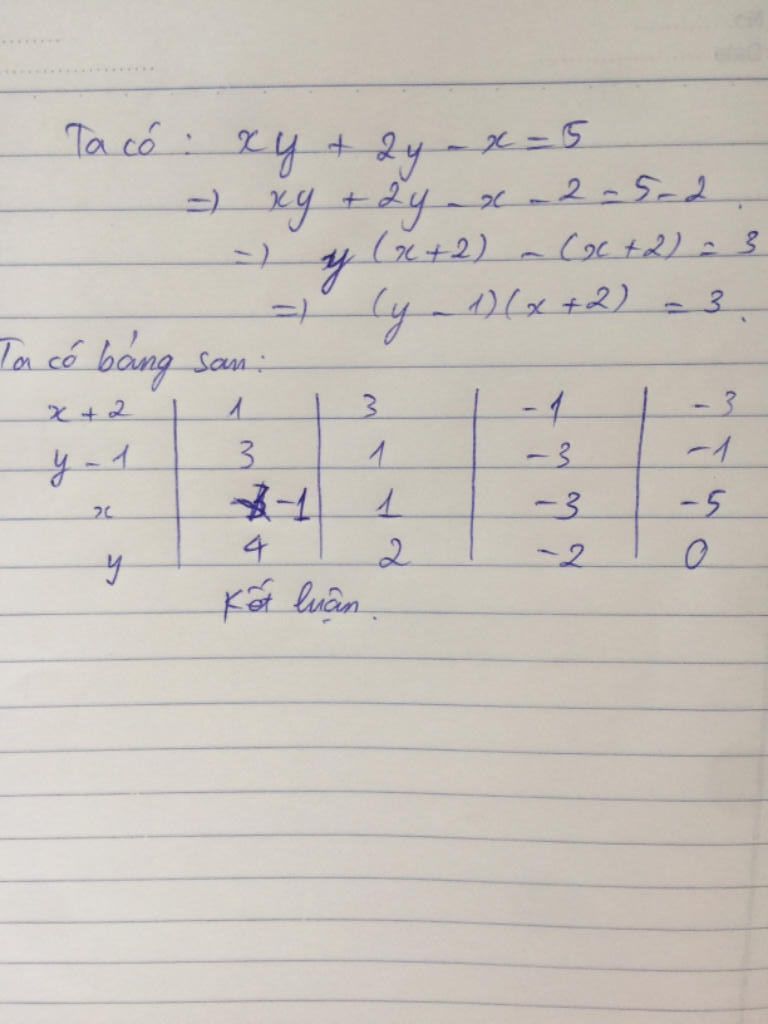 No.
Date
Ta có : xy + 2y - x = 5
=) xy + 2y - x - 2 = 5 - 2.
=) y (x+2) - (x+2) = 3
=) (y - 1)(x + 2) = 3.
Ta có bảng sau :
x + 2 | 1 | 3 | -1 | -3
y - 1 | 3 | 1 | -3 | -1
x | -1 | 1 | -3 | -5
y | 4 | 2 | -2 | 0
Kết luận.